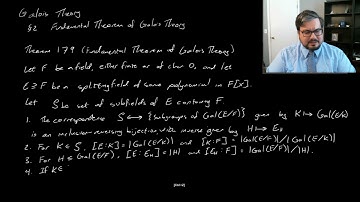 Galois Theory
§2 Fundamental Theorem of Galois Theory
Theorem 179 (Fundamental Theorem of Galois Theory)
Let F be a field, either finite or of char 0, and let
E ⊇ F be a splitting field of some polynomial in F[x].
Let S be set of subfields of E containing F.
1. The correspondence S ⟷ {subgroups of Gal(E/F)} given by K ↦ Gal(E/K)
is an inclusion-reversing bijection with inverse given by H ↦ E_H
2. For K ∈ S, [E:K] = |Gal(E/K)| and [K:F] = |Gal(E/F)| / |Gal(E/K)|
3. For H ≤ Gal(E/F), [E:E_H] = |H| and [E_H:F] = |Gal(E/F)| / |H|.
4. If K ∈